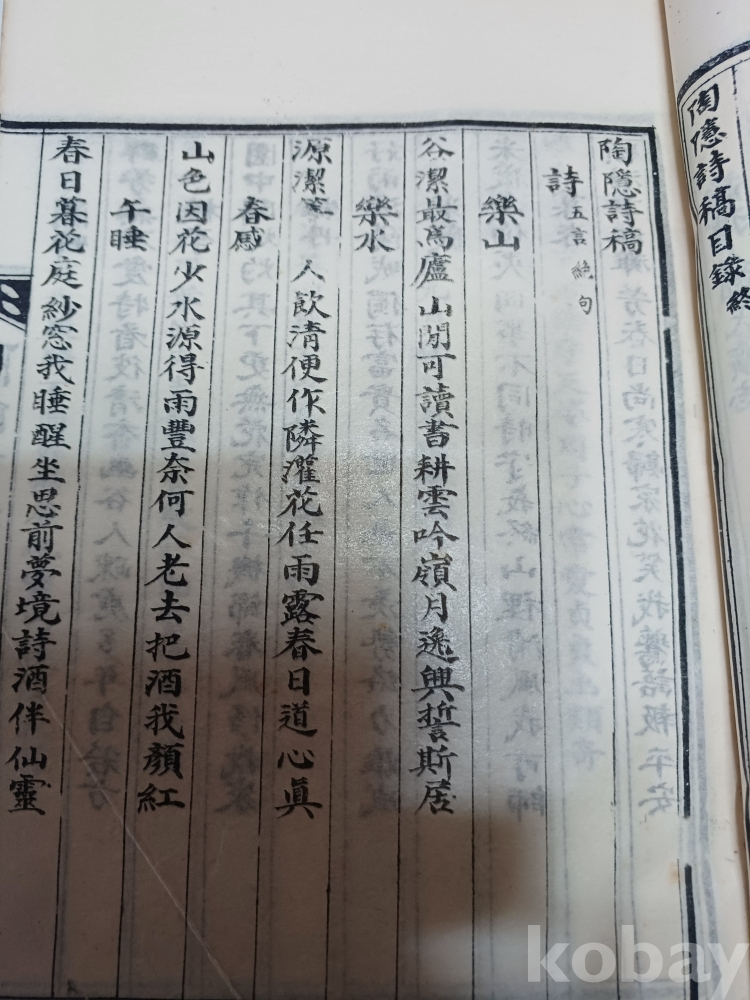 陶隱詩稿目錄終
陶隱詩稿
詩 五言絶句
樂山
谷潔最爲廬山閒可讀書耕雲吟嶺月逸興誓斯居
樂水
源潔 人飮清便作隣灌花任雨露春日道心眞
春感
山色因花少水源得雨豐奈何人老去把酒我顏紅
午睡
春日暮花庭紗窓我睡醒坐思前夢境詩酒伴仙靈
kobay